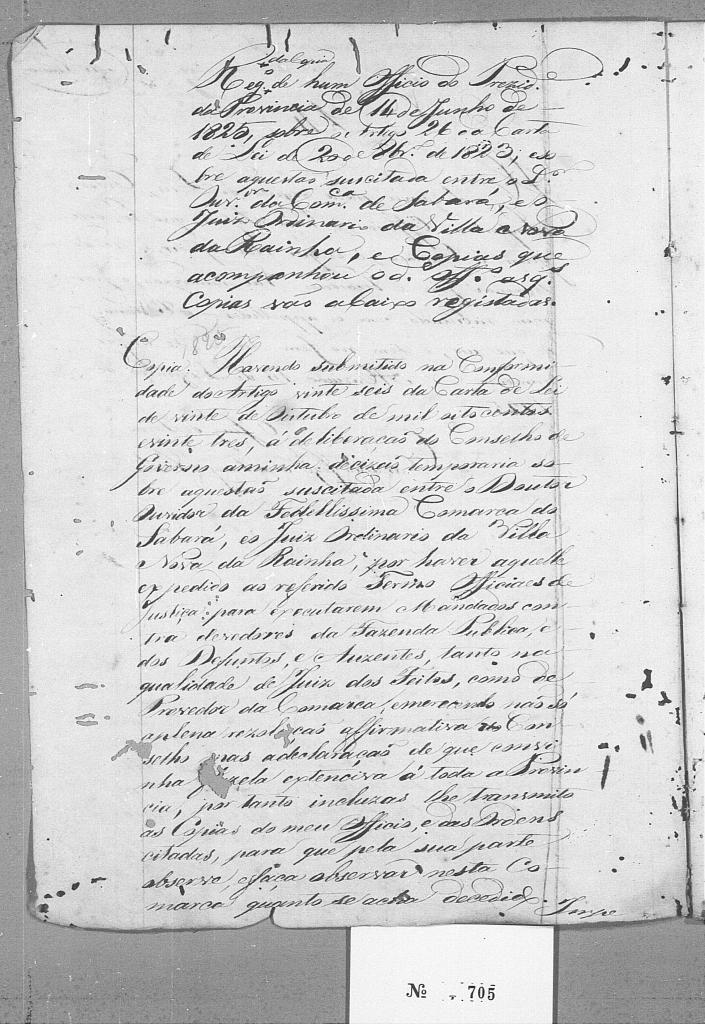 Reg.º de hum Officio do Prezid.e
da Provincia de 14 de Junho de
1825, sobre o Artigo 26 da Carta
de Lei de 20 de 8br.º de 1823, e so
bre aquestaõ suscitada entre o D.or
Ouv.or da Com.ca de Sabará, e o
Juiz Ordinario da Villa Nova
da Rainha, e Copias que
acompanhou o d. Off.º as q.s
Copias vaõ abaixo registadas.
Copia. Havendo submetido na Conformi
dade do Artigo vinte seis da Carta de Lei
de vinte de Outubro de mil oito centos
evinte tres, á deliberaçaõ do Conselho de
Governo aminha decizaõ temporaria so-
bre aquestaõ suscitada entre o Doutor
Ouvidor da Fedellissima Comarca do
Sabará, eo Juiz Ordinario da Villa
Nova da Rainha, por haver aquelle
expedido ao referido Termo Officiaes de
Justiça para executarem Mandados con-
tra devedores da Fazenda Publica, e
dos Defuntos, e Auzentes, tanto na
qualidade de Juiz dos Feitos, como de
Provedor da Comarca, emerecendo naõ só
aplena rezoluçaõ affirmativa do Con-
selho mas adeclaraçaõ de que convi-
nha fazela extenciva á toda a Provin
cia, por tanto incluzas lhe transmito
as Copias do meu Officio, e das Ordens
citadas, para que pela sua parte
observe, efaça observar nesta Co-
marca quanto se acha decedido. Impe
Nº 705